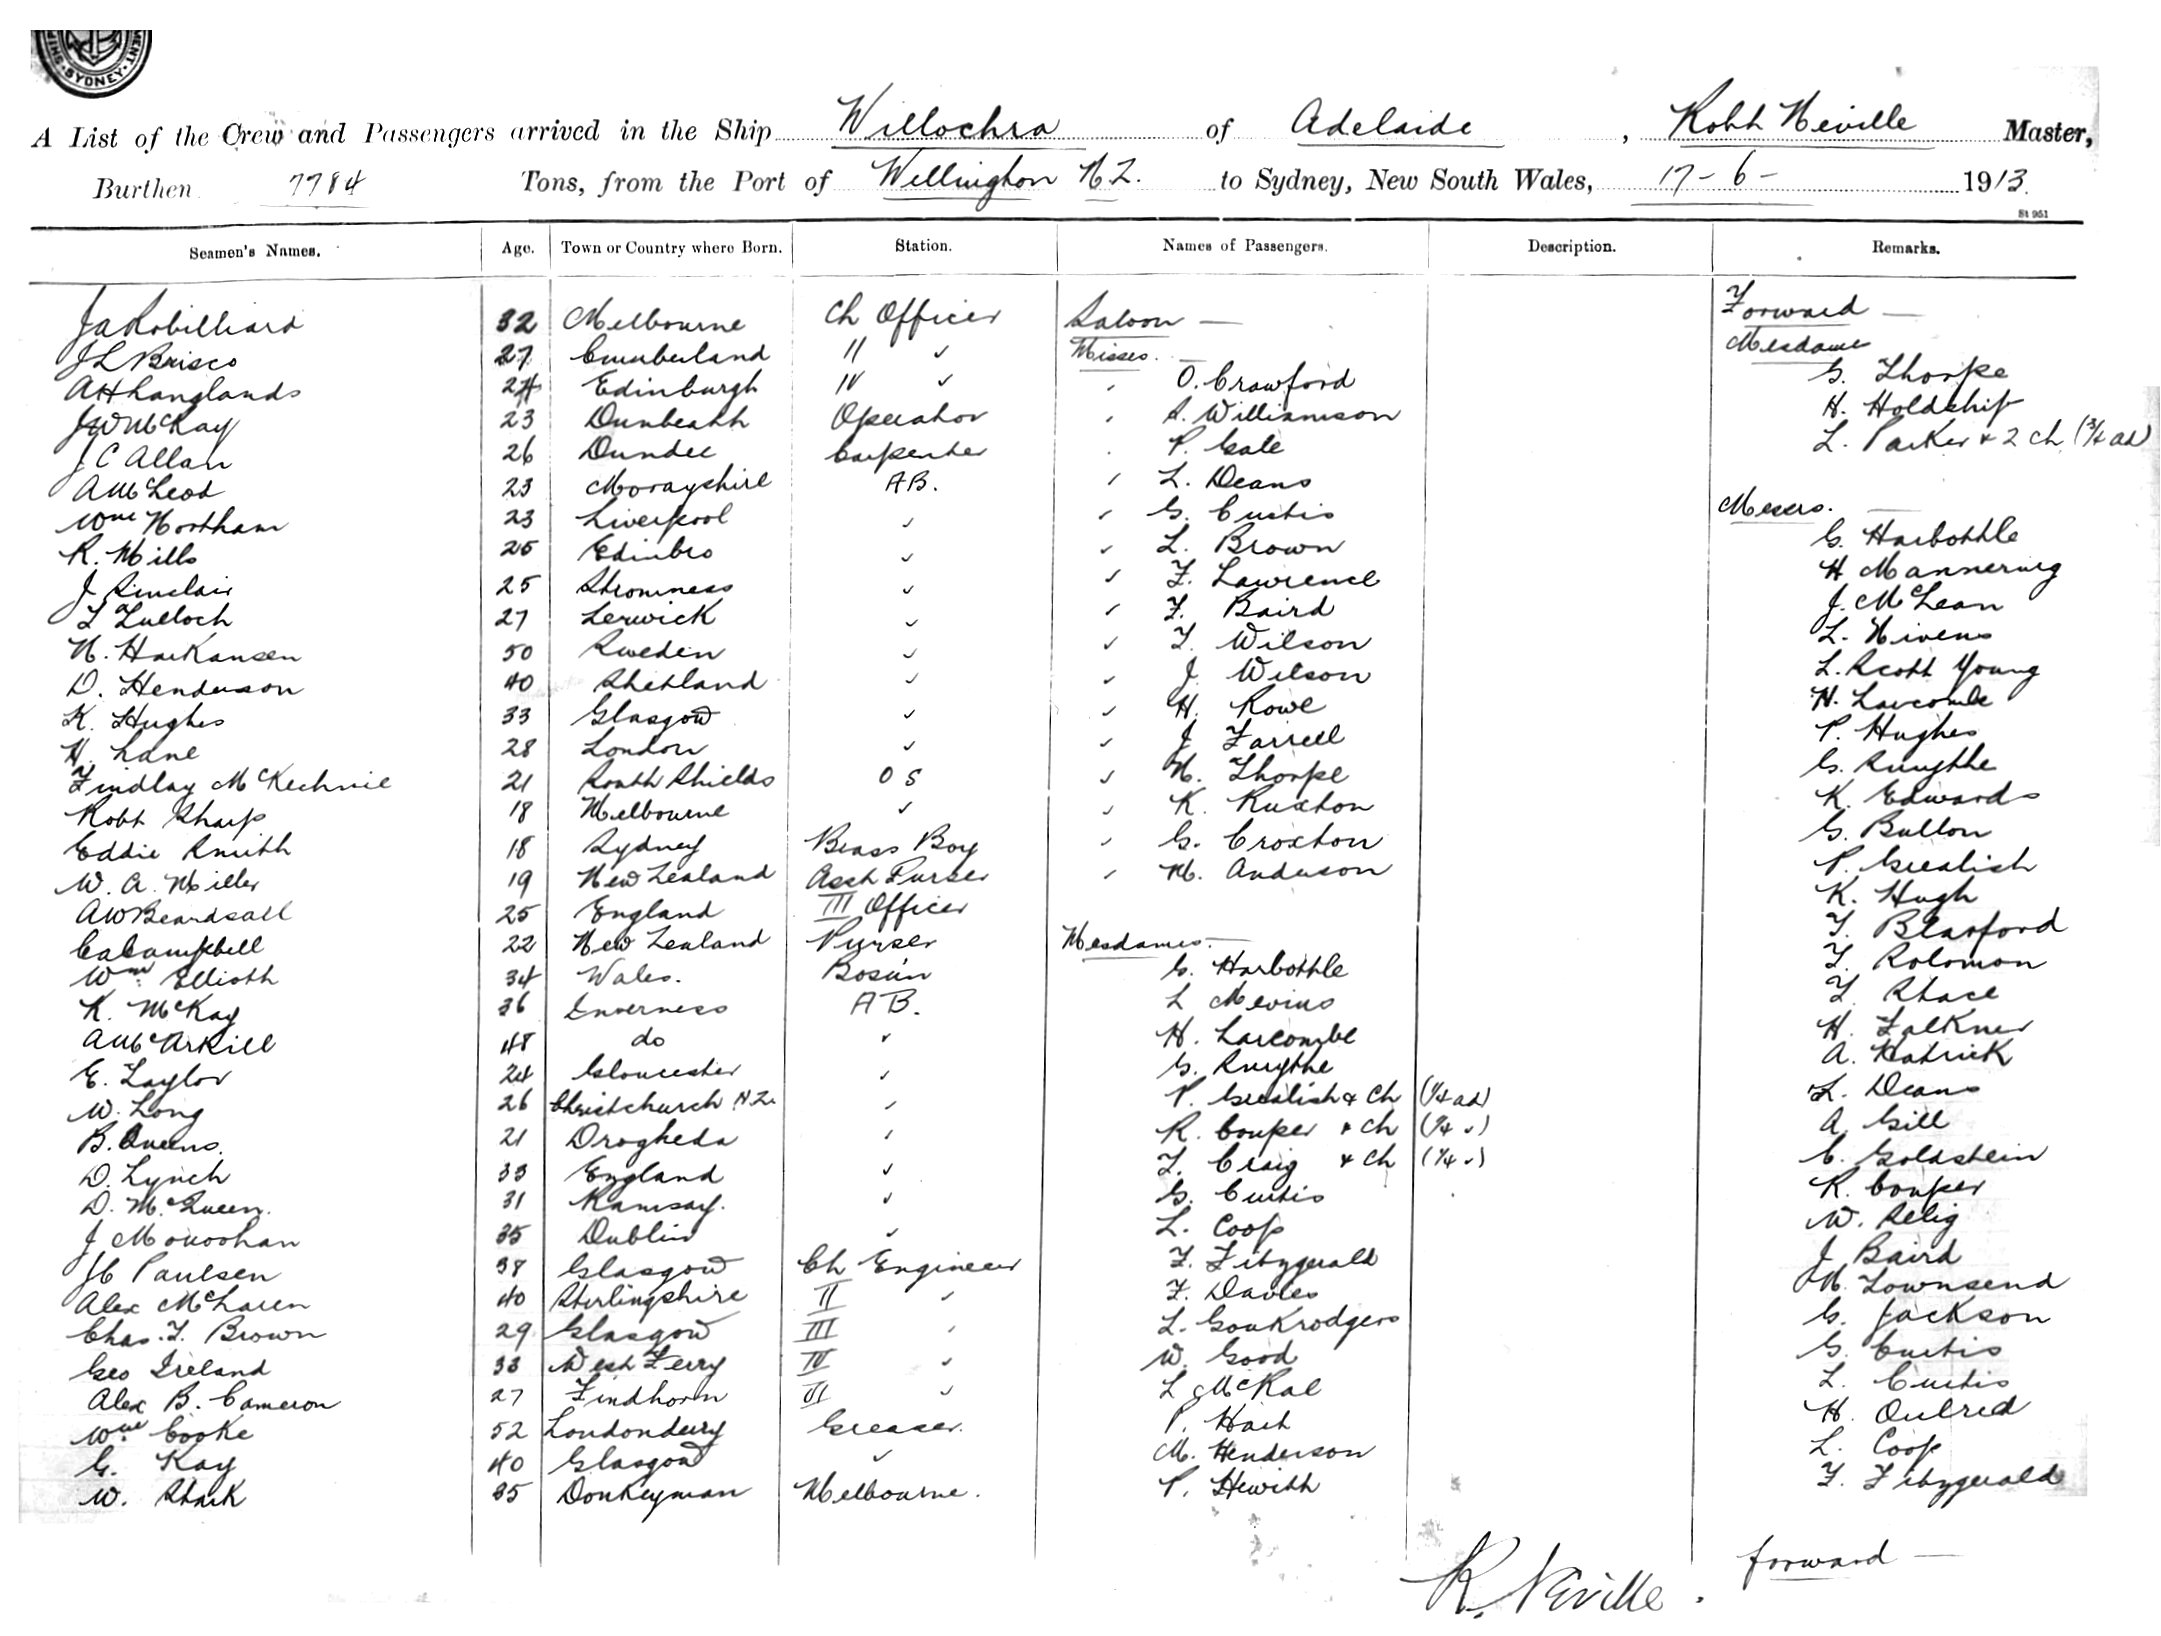 SYDNEY
A List of the Crew and Passengers arrived in the Ship Willochra of Adelaide, Robt Neville Master,
Burthen 7784 Tons, from the Port of Wellington N Z. to Sydney, New South Wales, 17-6- 1913.
St 951
Seamen's Names. Age. Town or Country where Born. Station. Names of Passengers. Description. Remarks.
J A Robilliard 32 Melbourne Ch Officer Saloon — Forward —
J L Brisco 27 Cumberland II ✓ Misses. — Mesdame
A H Langlands 24 Edinburgh IV ✓ O. Crawford G. Thorpe
J W McKay 23 Dunbeath Operator A. Williamson H. Holdship
J C Allan 26 Dundee Carpenter P. Gale L. Parker & 2 ch (3/4 ad)
A McLeod 23 Morayshire AB. L. Deans
Wm Northam 23 Liverpool ✓ G. Curtis Messrs. —
R. Mills 25 Edinbro ✓ L. Brown G. Harbottle
J Sinclair 25 Stromness ✓ F. Lawrence H Mannering
T Tulloch 27 Lerwick ✓ F. Baird J. McLean
N. Haakansen 50 Sweden ✓ T. Wilson L. Nivens
D. Henderson 40 Shetland ✓ J Wilson L. Scott Young
K. Hughes 33 Glasgow ✓ H. Rowe H. Larcombe
H. Lane 28 London ✓ J Farrell P. Hughes
Findlay McKechnie 21 South Shields O S N. Thorpe G. Smythe
Robt Sharp 18 Melbourne ✓ K. Ruxton K. Edwards
Eddie Smith 18 Sydney Brass Boy G. Croxton G. Bullon
W. A. Miller 19 New Zealand Asst Purser M. Anderson P. Grealish
A W Beardsall 25 England III Officer K. Hugh
C A Campbell 22 New Zealand Purser Mesdames — T. Blasford
Wm Elliott 34 Wales. Bosun G. Harbottle T. Solomon
K. McKay 36 Inverness A B. L Nevins T. Stace
A McArkill 48 do ✓ H. Larcombe H. Falkner
E. Taylor 24 Gloucester ✓ G. Smythe A. Hatrick
W. Long 26 Christchurch N Z. ✓ P. Grealish & Ch (1/4 ad) L. Deans
B. Owens. 21 Drogheda ✓ R. Couper & Ch (1/4 ✓) A. Gill
D. Lynch 33 England ✓ T. Craig & Ch (1/4 ✓) C. Goldstein
D. McQueen. 31 Ramsay. ✓ G. Curtis R. Couper
J Monoghan 35 Dublin ✓ L. Coop W. Selig
J C Paulsen 38 Glasgow Ch Engineer F. Fitzgerald J Baird
Alex McLaren 40 Stirlingshire II ✓ F. Davies N. Townsend
Chas. T. Brown 29 Glasgow III ✓ L. Goukrodgers G. Jackson
Geo Ireland 33 West Ferry IV ✓ W. Good G. Curtis
Alex B. Cameron 27 Findhorn VI ✓ L McRae L. Curtis
Wm Cooke 52 Londonderry Greaser. P. Hait H. Outred
G. Kay 40 Glasgow ✓ M. Henderson L. Coop
W. Stark 35 Donkeyman Melbourne. P. Hewitt F. Fitzgerald
forward —
R. Neville.